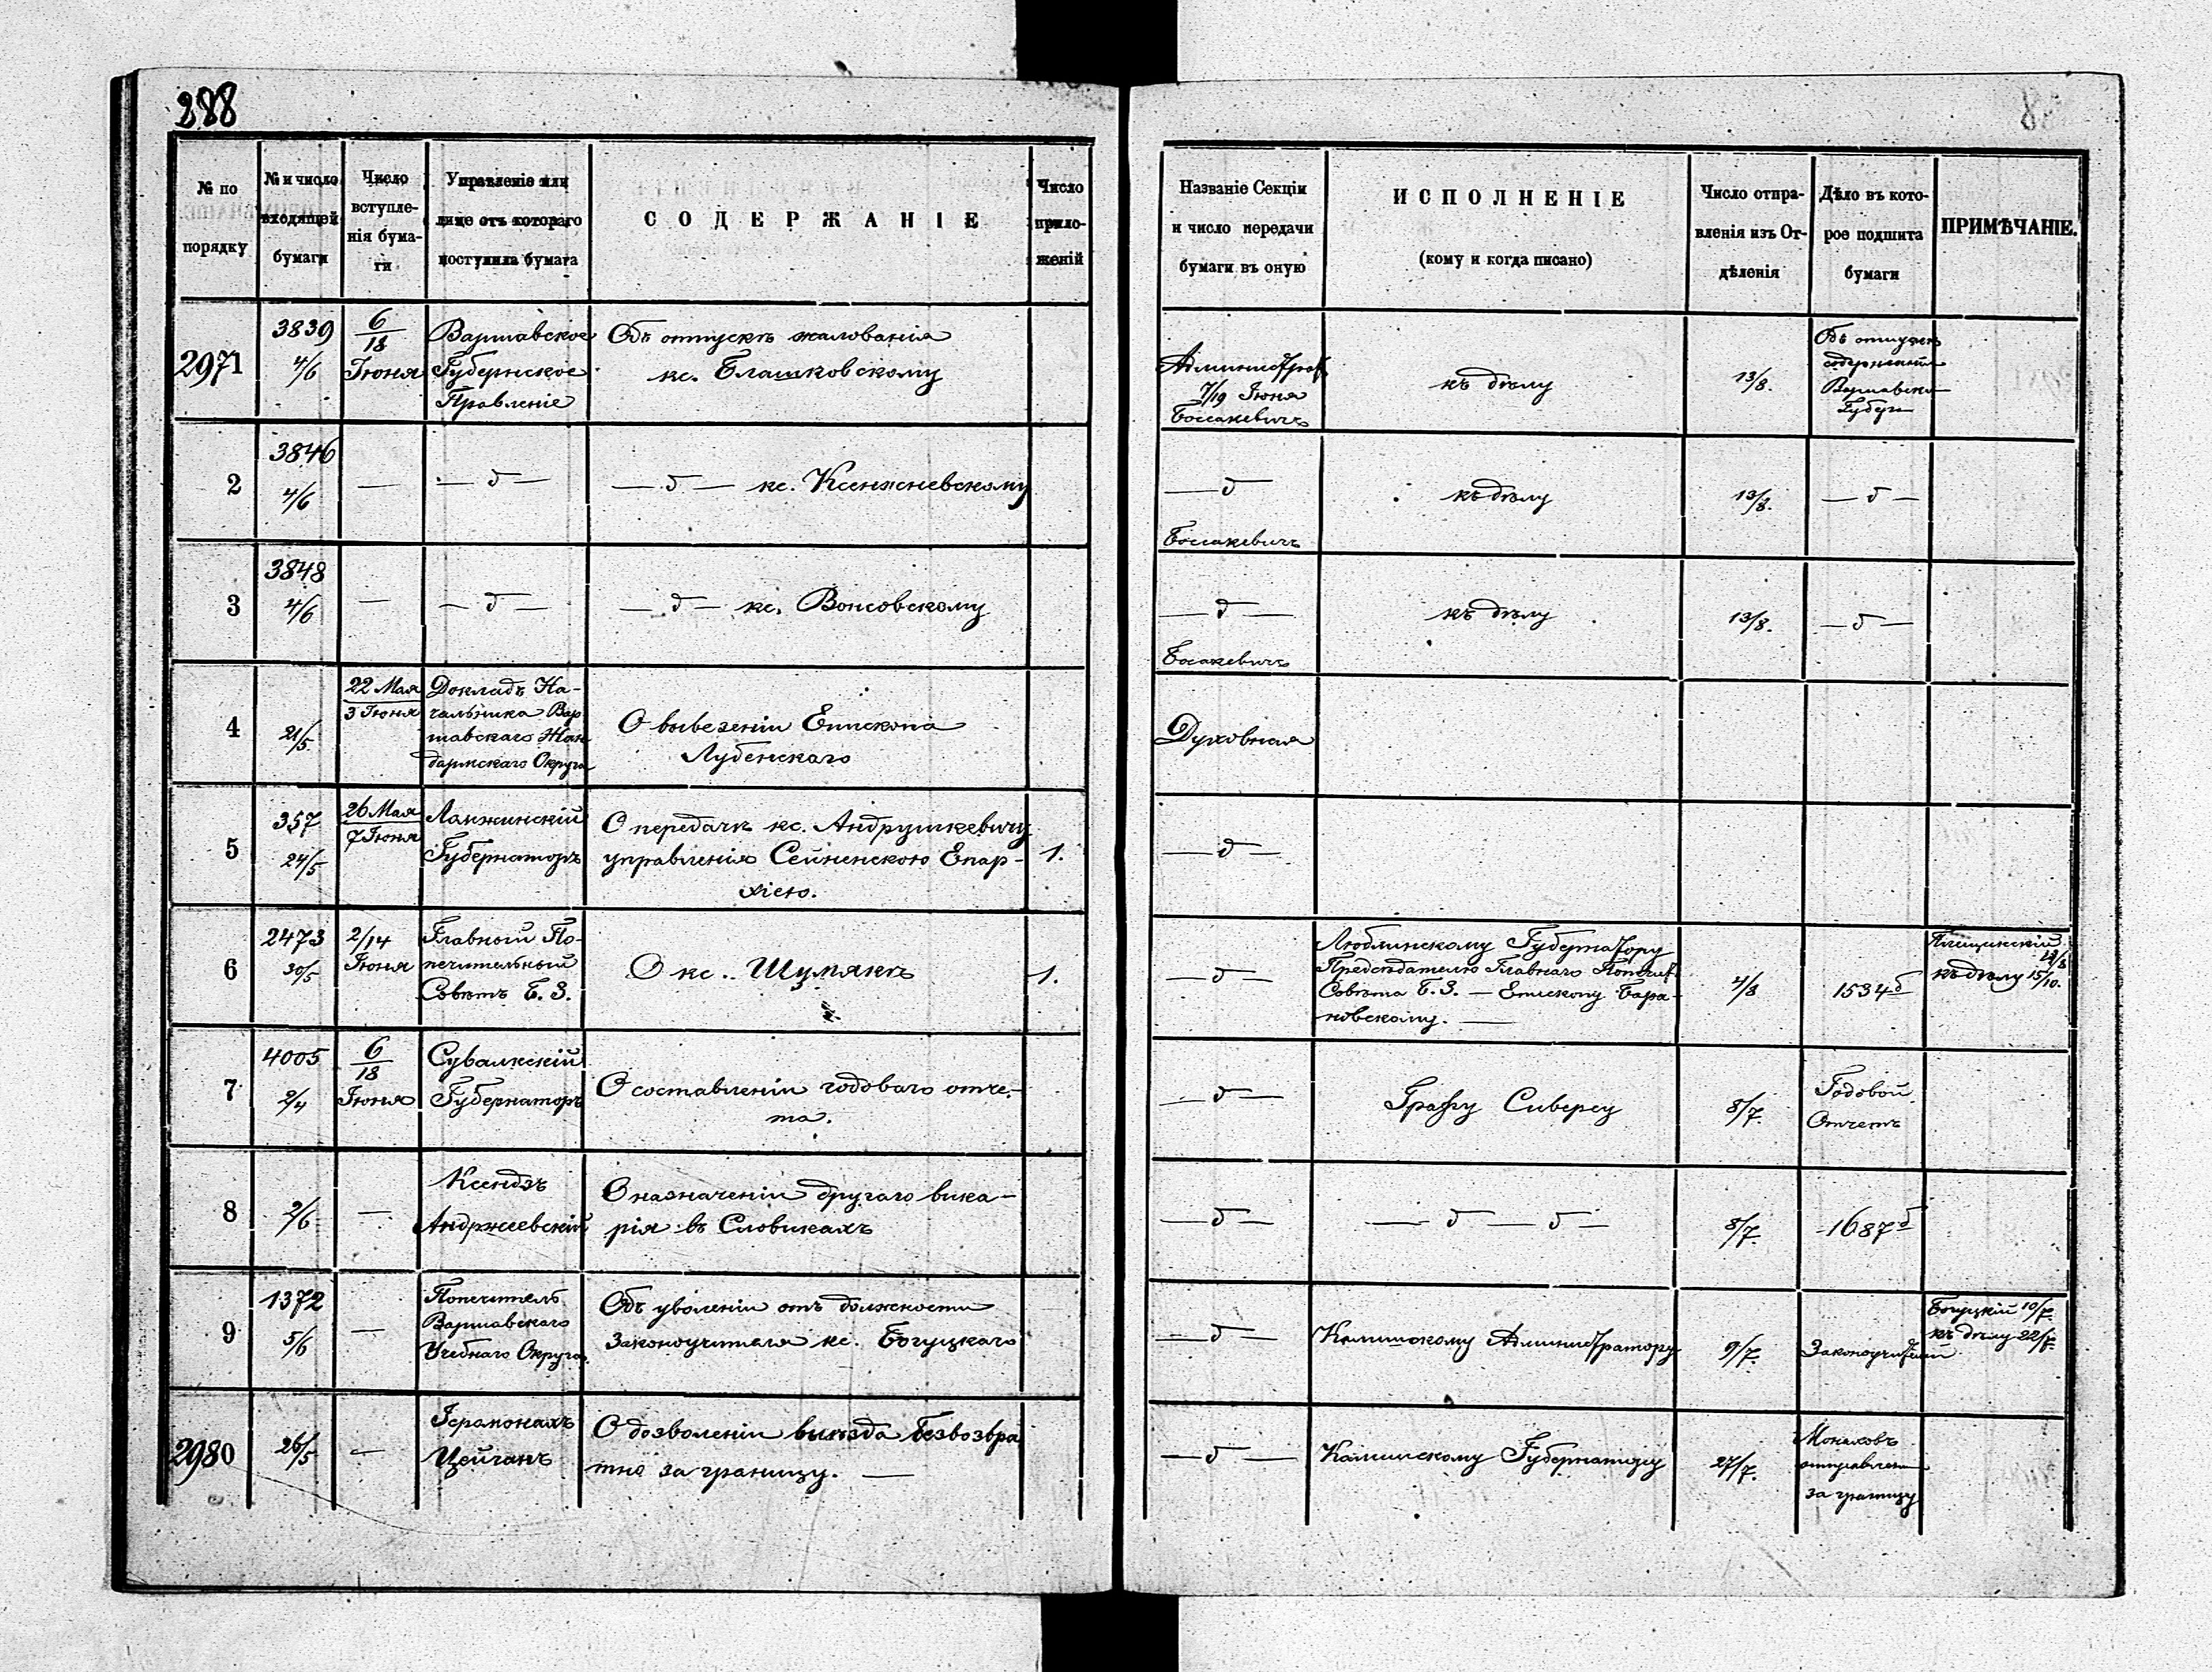 288
№ по порядку
№ и число входящей бумаги
Число вступленія бумаги
Управленіе или лице отъ котораго поступила бумага
СОДЕРЖАНІЕ
Число приложеній
Названіе Секціи и число передачи бумаги въ оную
ИСПОЛНЕНІЕ
(кому и когда писано)
Число отправленія изъ Отдѣленія
Дѣло въ которое подшита бумаги
ПРИМѢЧАНІЕ.
2971
3839
4/6
6/18
Іюня
Варшавское
Губернское
Правленіе
Объ отпускѣ жалованія
кс. Блашковскому
Администрат.
7/19 Іюня
Боссакевичъ
къ дѣлу
13/8.
Объ отпускѣ
содержанія
Варшавск.
Губерн
2
3846
4/6
—
— д —
— д — кс. Ксенжневскому
— д
Боссакевичъ
къ дѣлу
13/8.
— д —
3
3848
4/6
—
— д —
— д — кс. Вонсовскому
— д —
Босакевичъ
къ дѣлу
13/8.
— д —
4
21/5
22 Мая
3 Іюня
Докладъ На-
чальника Вар
шавскаго Жан
дармскаго Округа
О вывезеніи Епископа
Лубенскаго
Духовная
5
357
24/5
26 Мая
7 Іюня
Ломжинскій
Губернаторъ
О передачѣ кс. Андрушкевичу
управленія Сейненскою Епар-
хіею.
1.
— д —
6
2473
30/5
2/14
Іюня
Главный По-
печительный
Совѣтъ Б. З.
О кс. Шумякѣ
1.
— д —
Люблинскому Губернатору
Предсѣдателю Главнаго Попечит.
Совѣта Б. З. — Епископу Бара-
новскому. —
4/8
1534 б
Плещинскій
13/8
къ дѣлу 15/10.
7
4005
2/4
6/18
Іюня
Сувалкскій
Губернаторъ
О составленіи годоваго отче-
та.
— д —
Графу Сиверсу
8/7.
Годовой
Отчетъ
8
2/6
—
Ксендзъ
Анджеевскій
О назначеніи другаго вика-
рія въ Словикахъ
— д —
— д — д —
8/7.
1687 б
9
1372
5/6
—
Попечитель
Варшавскаго
Учебнаго Округа.
Объ уволеніи отъ должности
Законоучителя кс. Богуцкаго
— д —
Калишскому Администратору
9/7.
Законоучителей
Богуцкій 10/7.
къ дѣлу 22/7.
2980
26/5
—
Іеромонахъ
Цейганъ
О дозволеніи выѣзда безвозвра
тно за границу. —
— д —
Калишскому Губернатору
27/7.
Монаховъ
отправлен
за границу